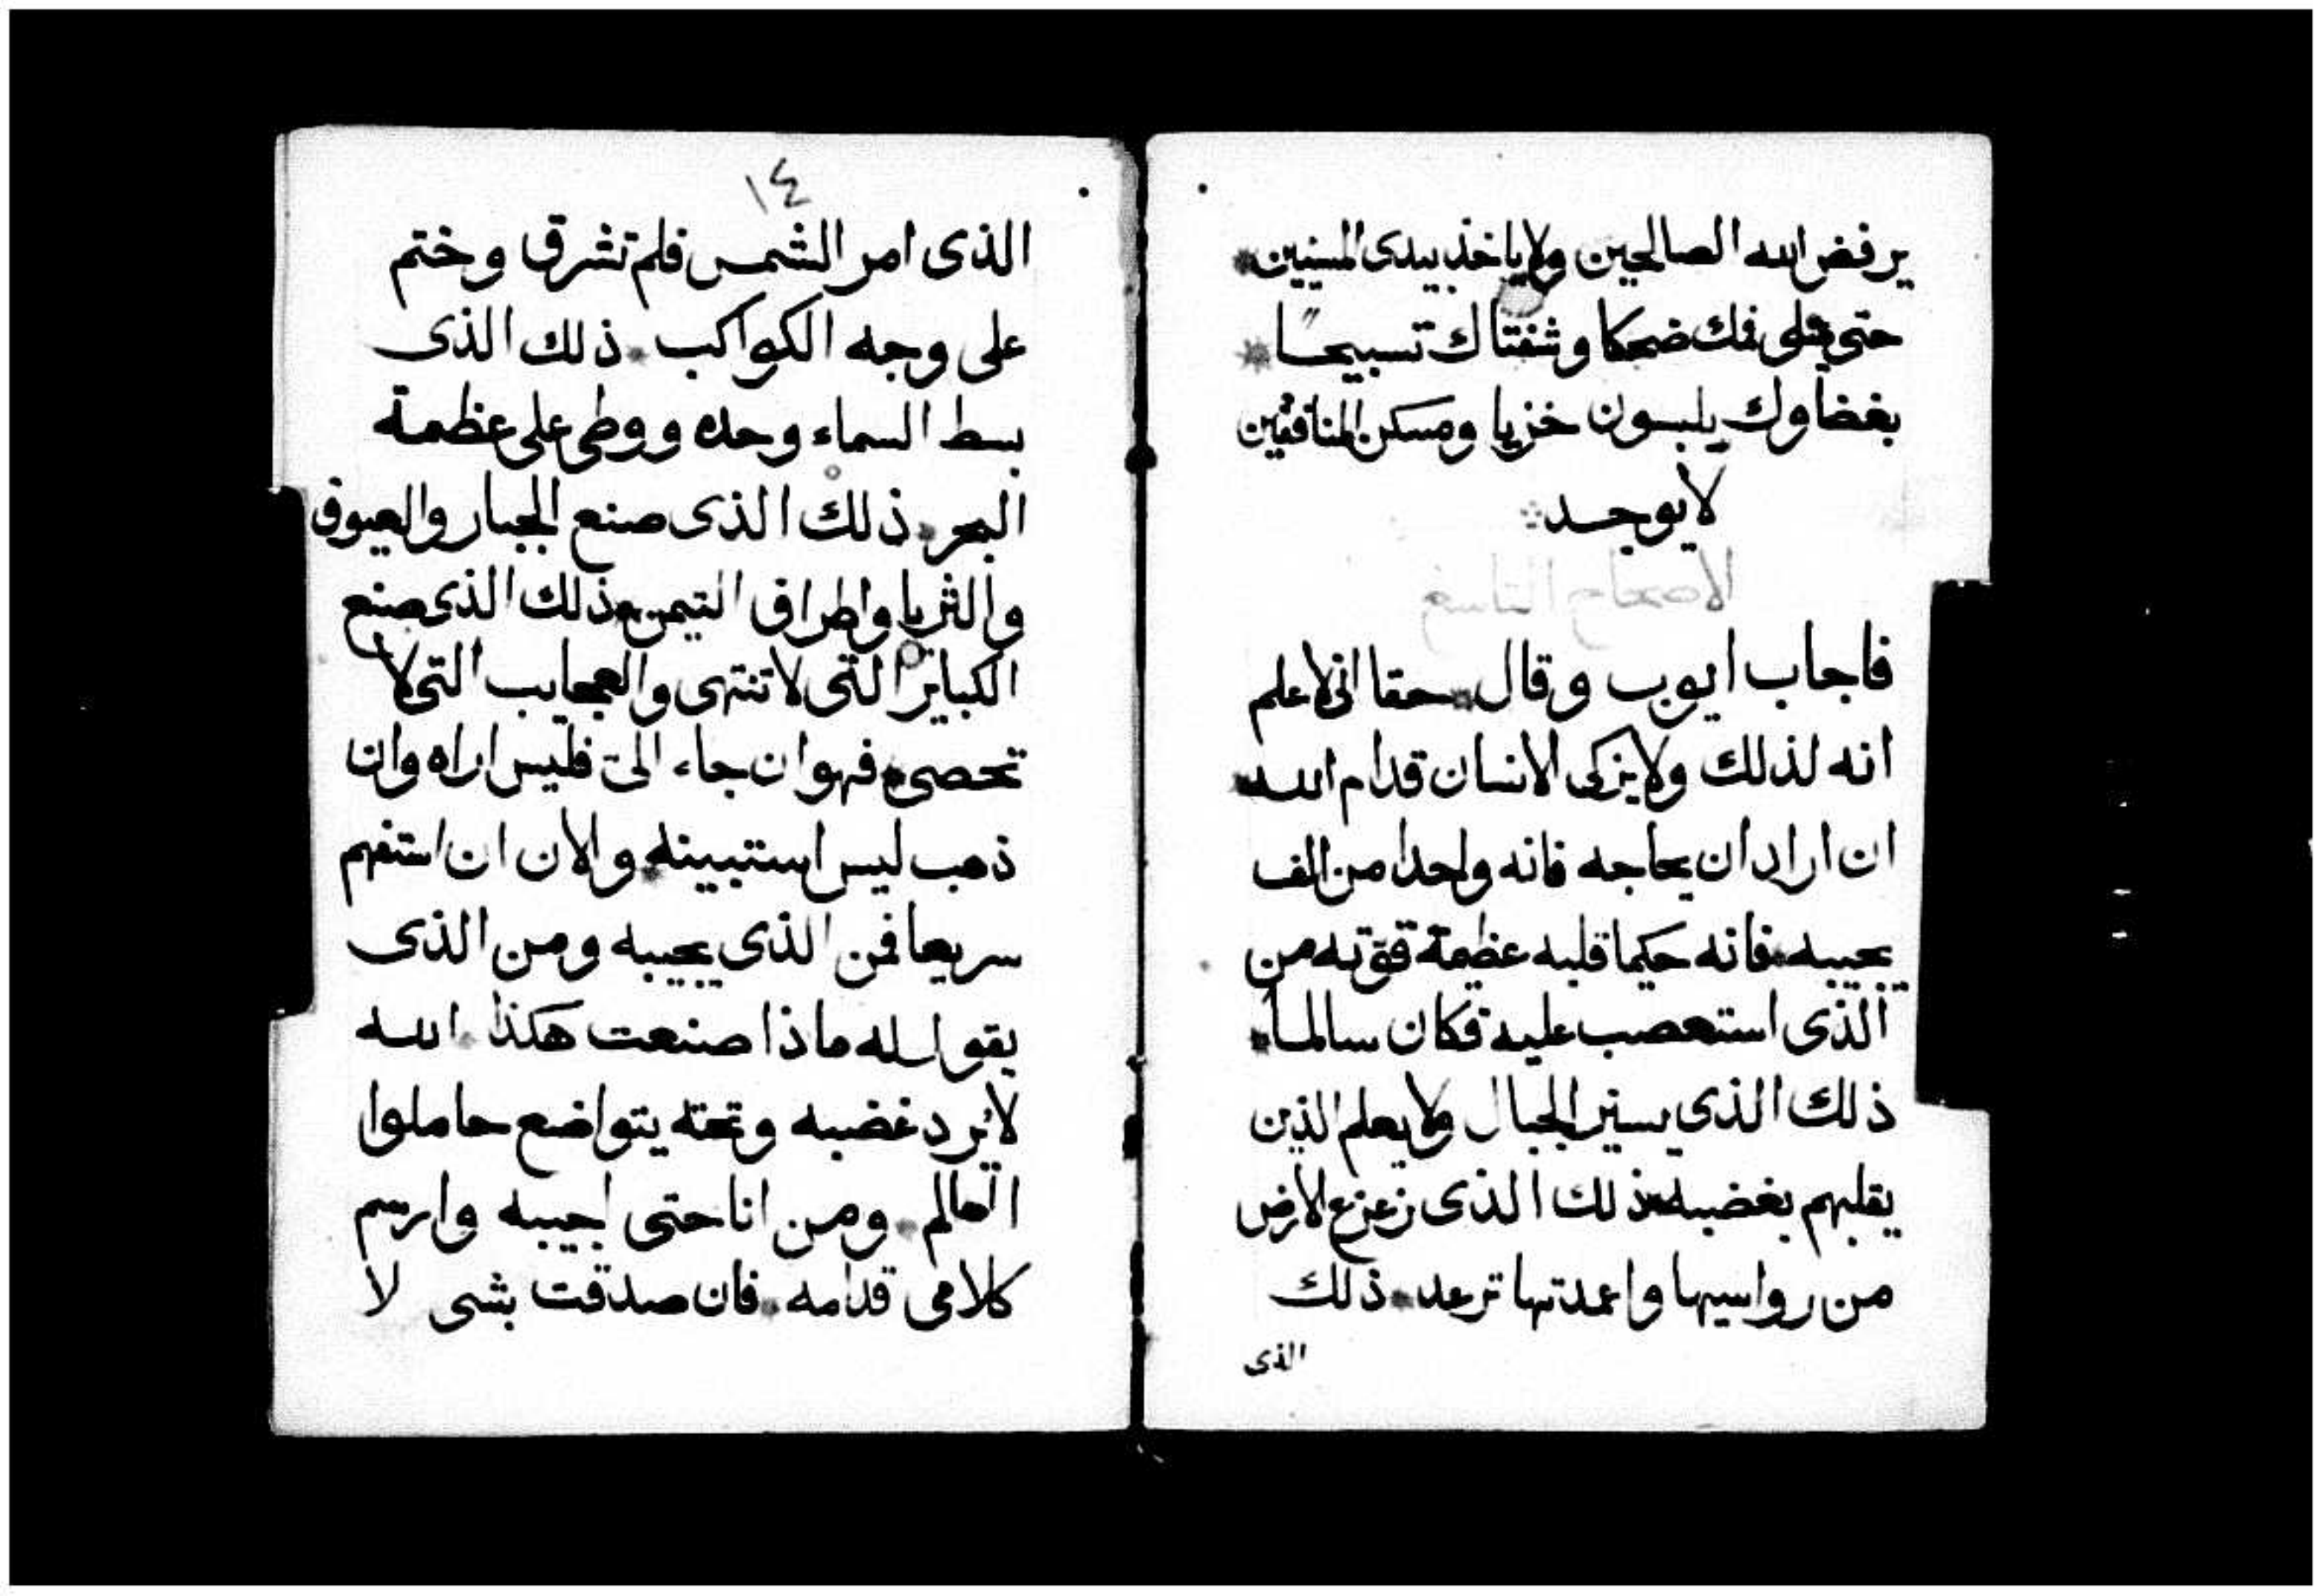 يرفض الله الصالحين ولا ياخذ بيدى المسيين
حتى يمتلى فمك ضحكا وشفتاك تسبيحا
بغضاوك يلبسون خزيا ومسكن المنافقين
لا يوجد
الاصحاح التاسع
فاجاب ايوب وقال حقا انى لاعلم
انه لذلك ولا يزكى الانسان قدام الله
ان اراد ان يحاججه فانه واحدا من الف
يجيبه فانه حكيما قلبه عظيمة قوته من
الذى استعصب عليه فكان سالما
ذلك الذى يسير الجبال ولا يعلم الذين
يقلبهم بغضبه ذلك الذى زعزع الارض
من رواسيها واعمدتها ترعد ذلك
الذى
١٤
الذى امر الشمس فلم تشرق وختم
على وجه الكواكب ذلك الذى
بسط السماء وحده ووطى على عظمة
البحر ذلك الذى صنع الجبار والعيوق
والثريا واطراف التيمن ذلك الذى صنع
الكباير التى لا تنتهى والعجايب التى لا
تحصى فهو ان جاء الىّ فليس اراه وان
ذهب ليس استبينه والان ان استفهم
سريعا فمن الذى يجيبه ومن الذى
يقول له ماذا صنعت هكذا الله
لا يرد غضبه وتحته يتواضع حاملوا
العالم ومن انا حتى اجيبه وارسم
كلامى قدامه فان صدقت بشى لا